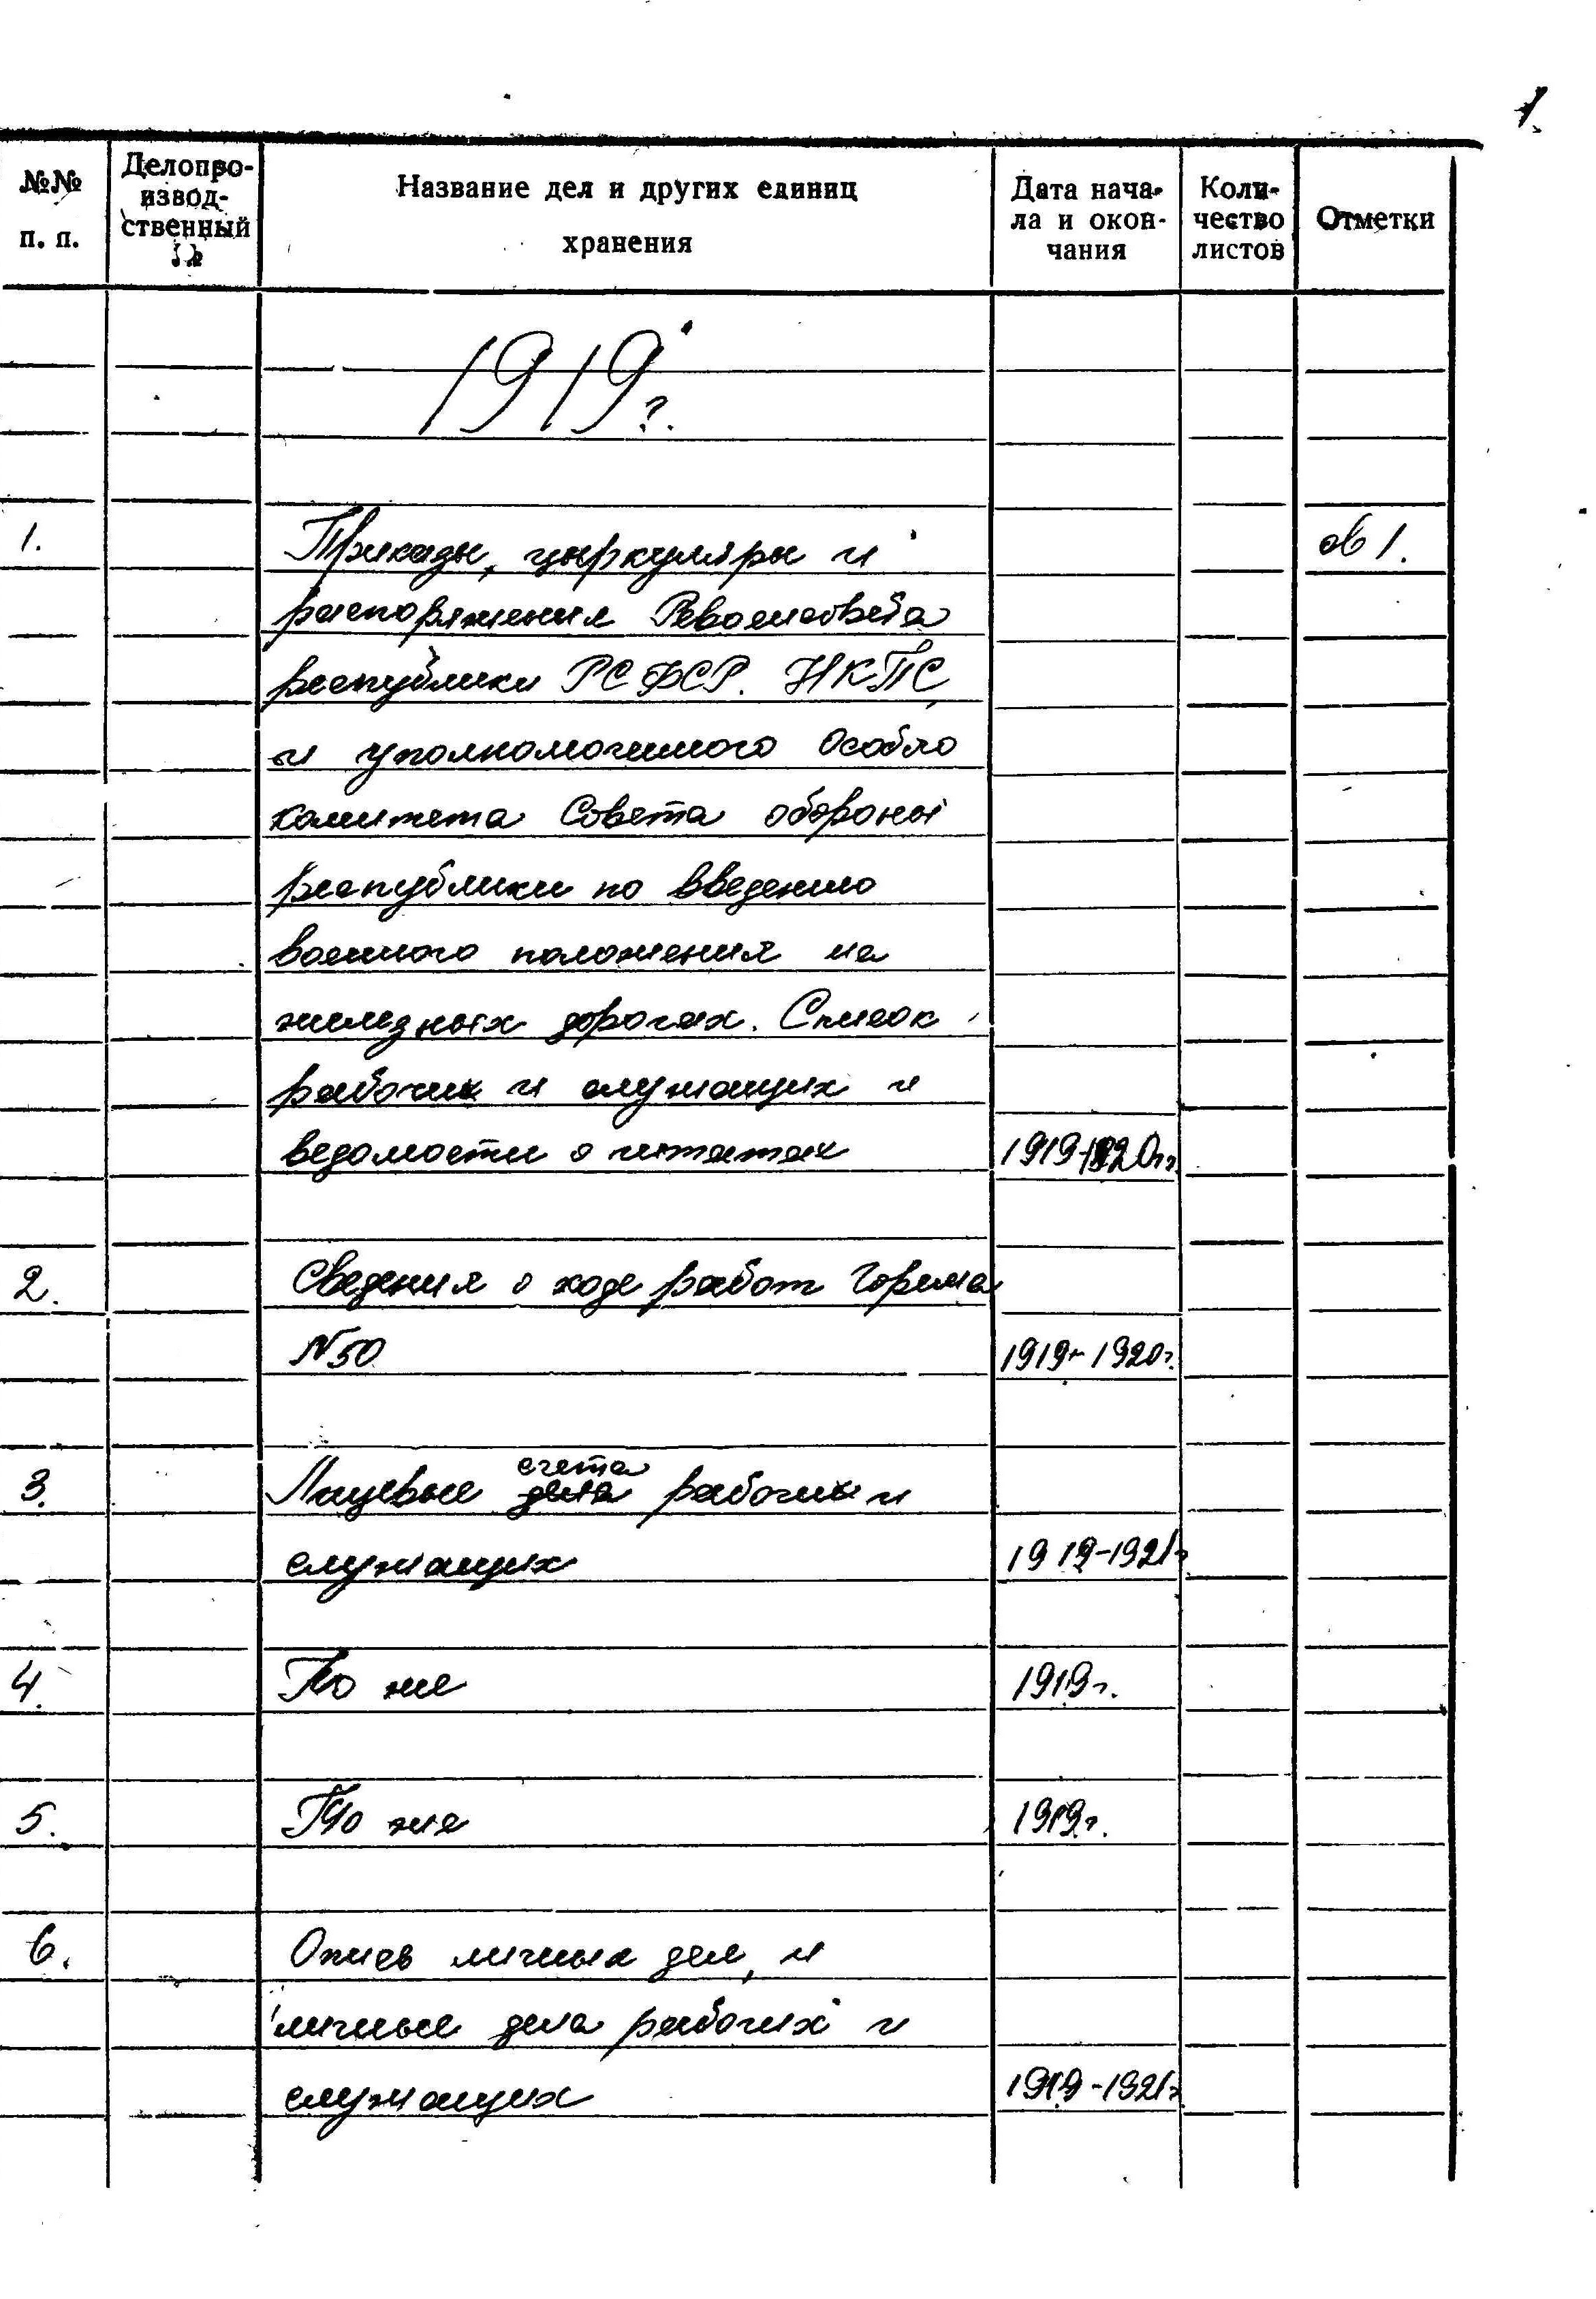 1
№№ п. п.
Делопро-
извод-
ственный
№
Название дел и других единиц
хранения
Дата нача-
ла и окон-
чания
Коли-
чество
листов
Отметки
1919 г.
1. Приказы, циркуляры и
распоряжения Реввоенсовета
республики РСФСР. НКПС,
и уполномоченного Особого
комитета Совета обороны
республики по введению
военного положения на
железных дорогах. Список
рабочих и служащих и
ведомости о штатах 1919-1920гг.
2. Сведения о ходе работ
N 50 1919-1920г.
3. Лицевые счета рабочих и
служащих 1919-1921г
4. То же 1919г.
5. То же 1919г.
6. Опись личных дел, и
личные дела рабочих и
служащих 1919-1921г